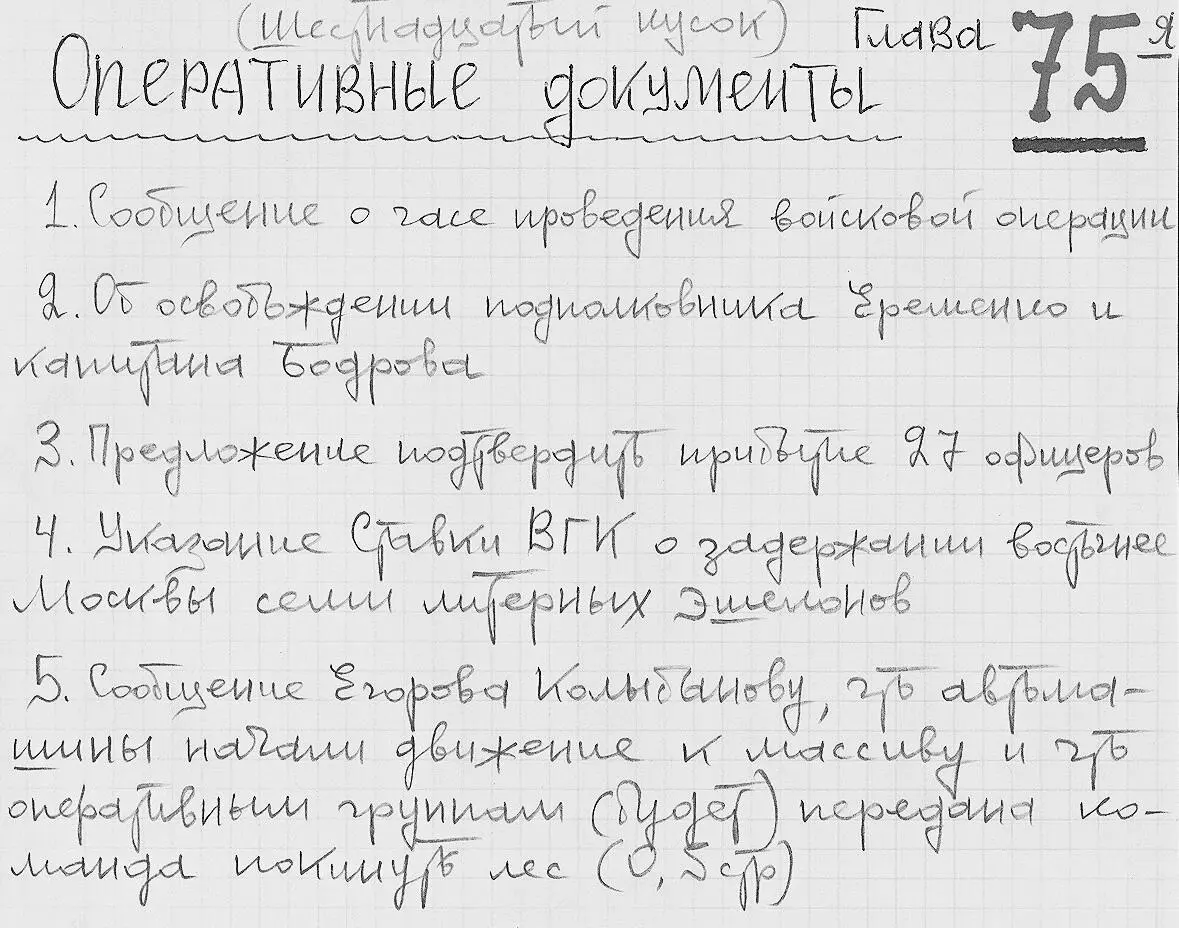 (Шестнадцатый кусок) Глава 75 я
Оперативные документы
1. Сообщение о часе проведения войсковой операции
2. Об освобождении подполковника Еременко и
капитана Бодрова
3. Предложение подтвердить прибытие 27 офицеров
4. Указание Ставки ВГК о задержании восточнее
Москвы семи литерных эшелонов
5. Сообщение Егорова Колыбанову, что автома-
шины начали движение к массиву и что
оперативным группам (будет) передана ко-
манда покинуть лес (0,5 стр)